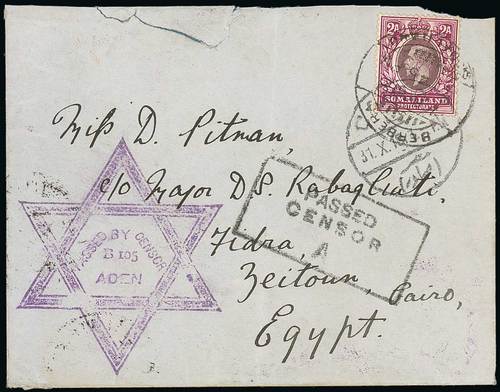 2A 2A
SOMALILAND
PROTECTORATE
BERBERA
Miss D. Pitman,
c/o Major D.S. Rabagliati.
Fidra,
Zeitoun, Cairo,
Egypt.
PASSED
CENSOR
A
PASSED BY CENSOR
B 105
ADEN